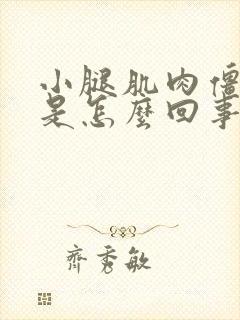 小腿肌肉僵
是怎麼回事
齊秀敏